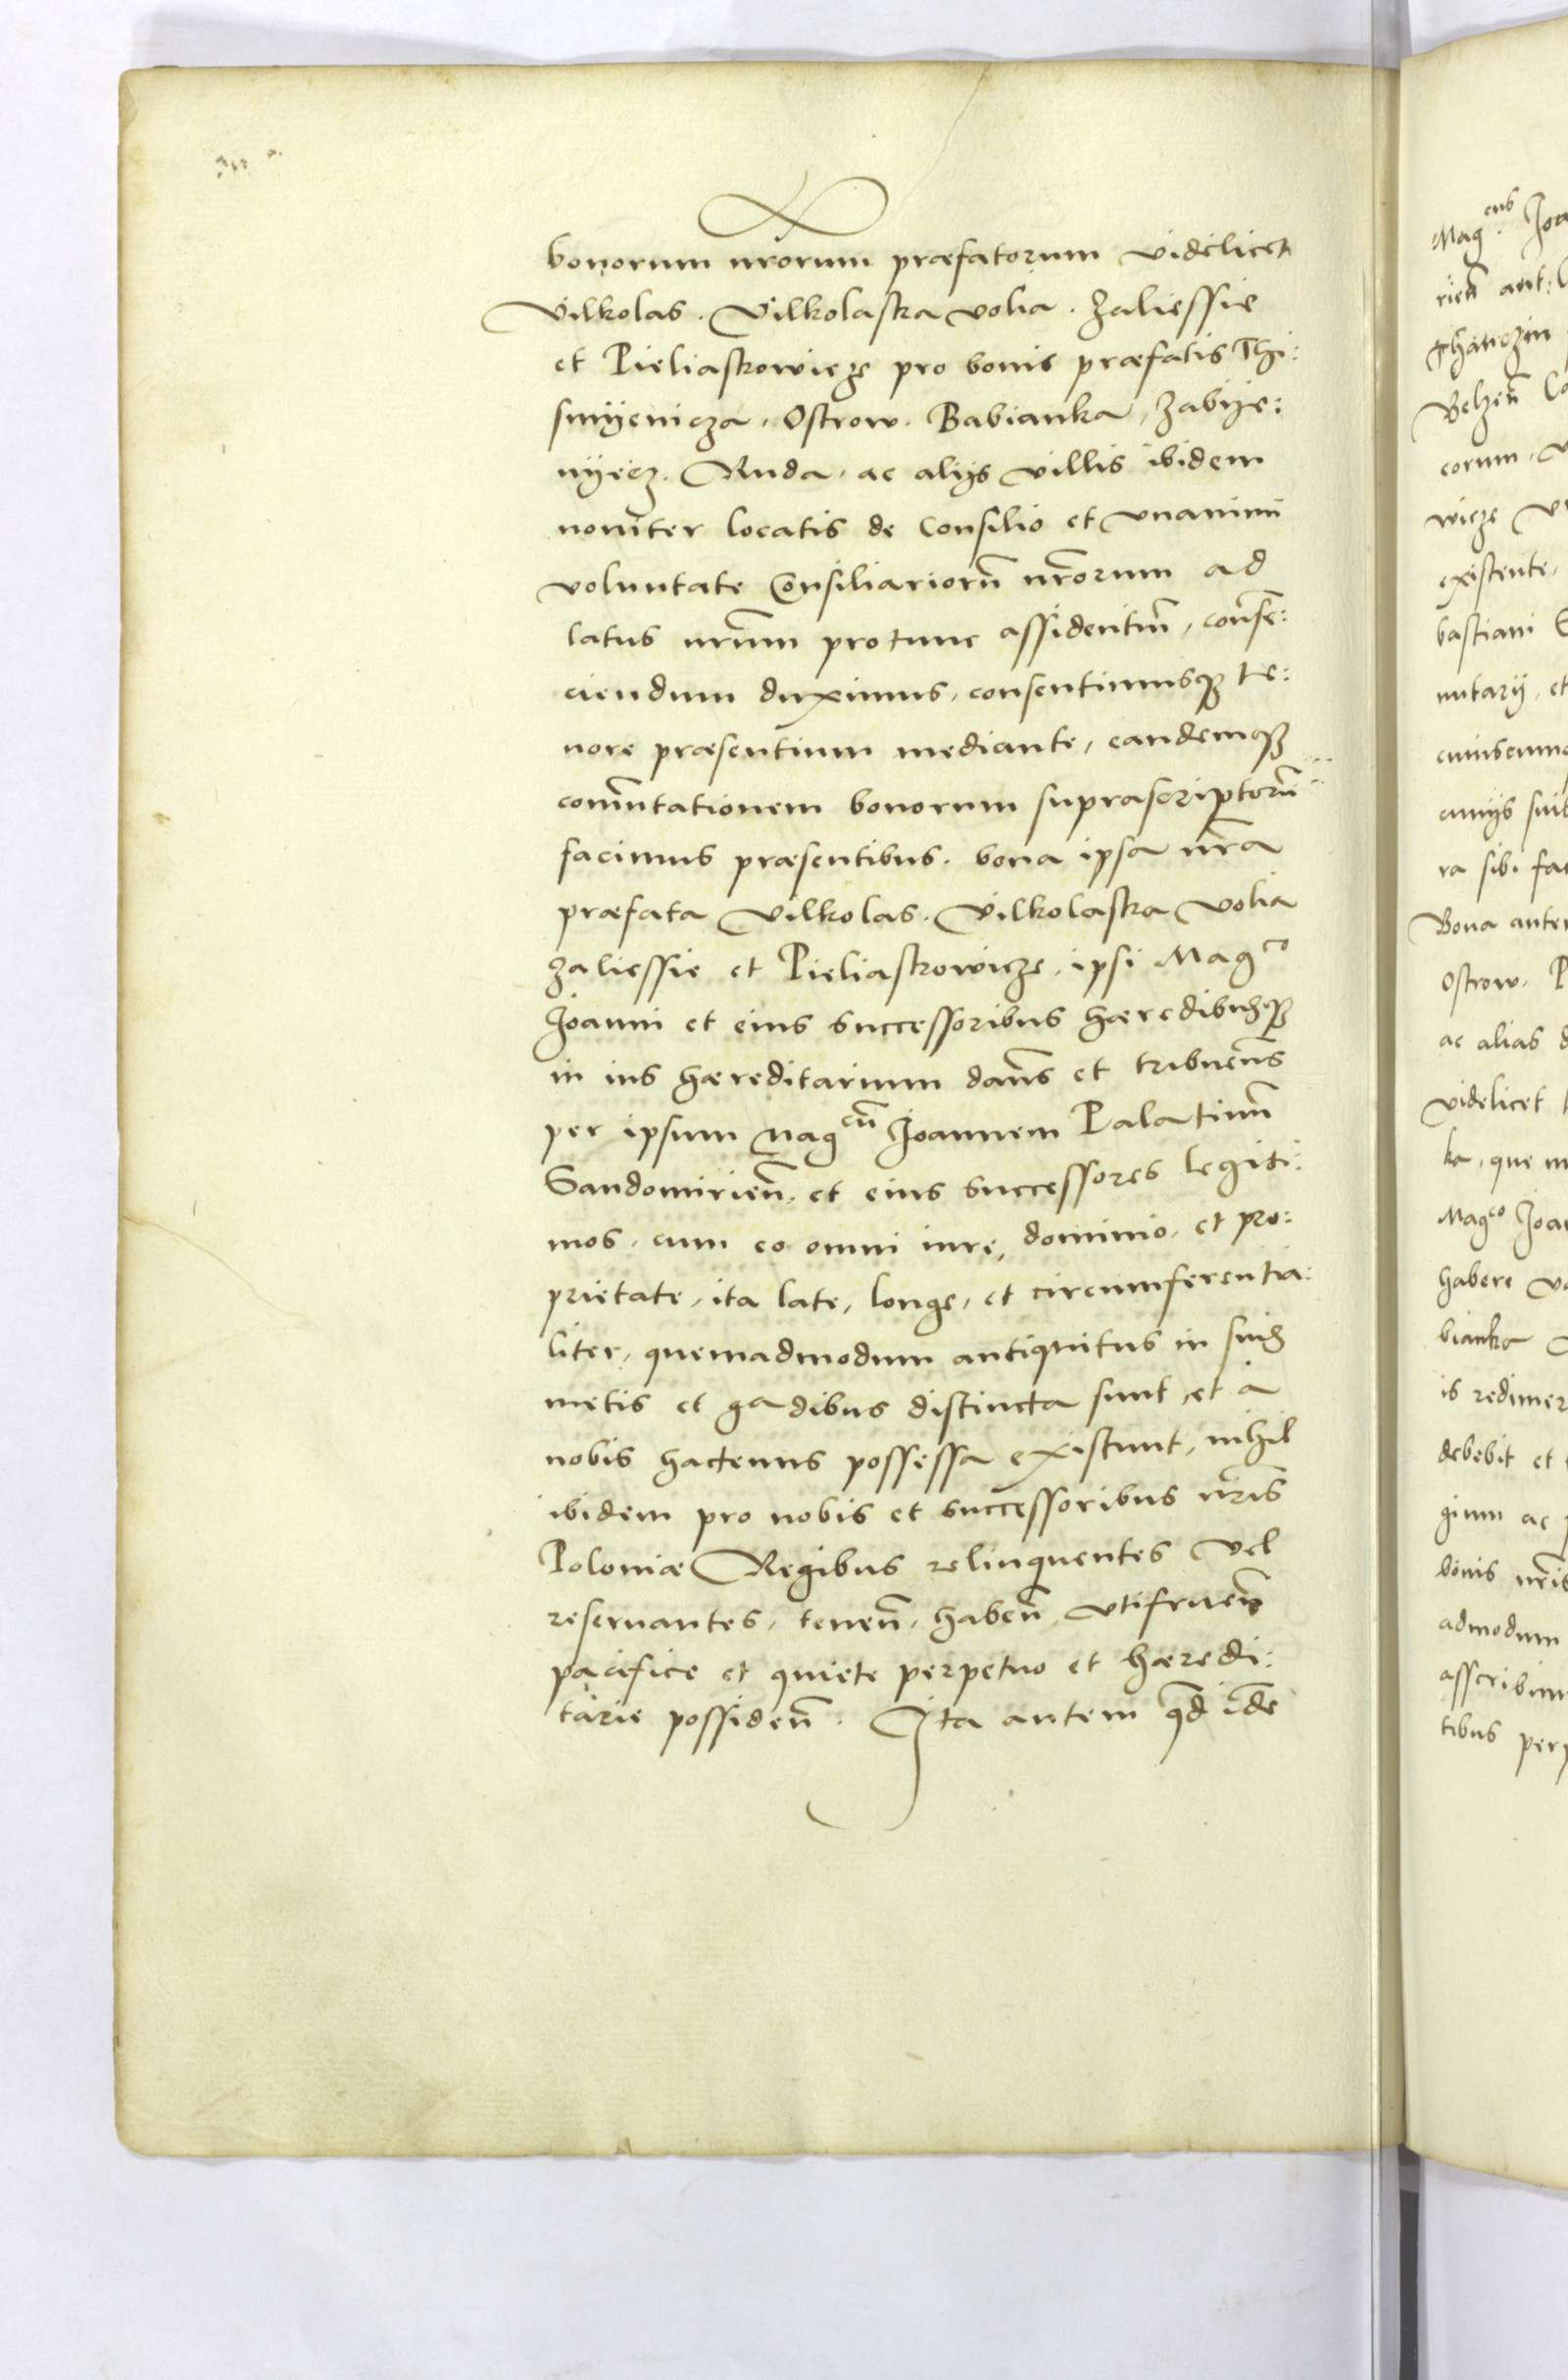 bonorum nrorum præfatorum videlicet
Vilkolas. Vilkolaska volia. Zaliessie
et Pieliaskowicze pro bonis præfatis Thi:
smÿenicza, Ostrow. Babianka, Zabÿe:
nÿecz. Ruda, ac alijs villis ibidem
noviter locatis de Consilio et vnanimi
voluntate Consiliariorũ nr̃orum ad
latus nr̃um pro tunc assidentiũ, consẽ:
ciendum duximus, consentimusq; te:
nore præsentium mediante, eandemq;
com̃utationem bonorum suprascriptorũ
facimus præsentibus. bona ipsa nr̃a
præfata Vilkolas. Vilkolaska Volia
Zaliessie et Pieliaskowicze, ipsi Mag^co
Joanni et eius successoribus hæredibusq;
in ius hæreditarium dan̄s et tribuen̄s
per ipsum Mag^cũ Joannem Palatinũ
Sandomirien̄. et eius successores legiti:
mos, cum eo omni iure, dominio, et pro:
prietate, ita late, longe, et circumferentia:
liter, quemadmodum antiquitus in suis
metis et gadibus distincta sunt, et à
nobis hactenus possessa existunt, nihil
ibidem pro nobis et successoribus nr̃is
Poloniæ Regibus relinquentes vel
reseruantes, tenen̄. haben̄. vtifruen̄
pacifice et quiete perpetuo et hæredi:
tarie possiden̄. Ita autem q̃d idẽ
Mag^cus Joa
rien̄ aut:
thanczin
Belzen̄ Ca
corum, v
wicze v
existente,
bastiani
nutarij, et
cuiuscunq
cuiÿs sui
ra sibi fac
Bona autem
Ostrow. P
ac alias d
videlicet
ka, que in
Mag^co Joan
habere va
bianka
is redimer
debebit et
gium ac p
bonis nr̃is
admodum
asscribim
tibus perp